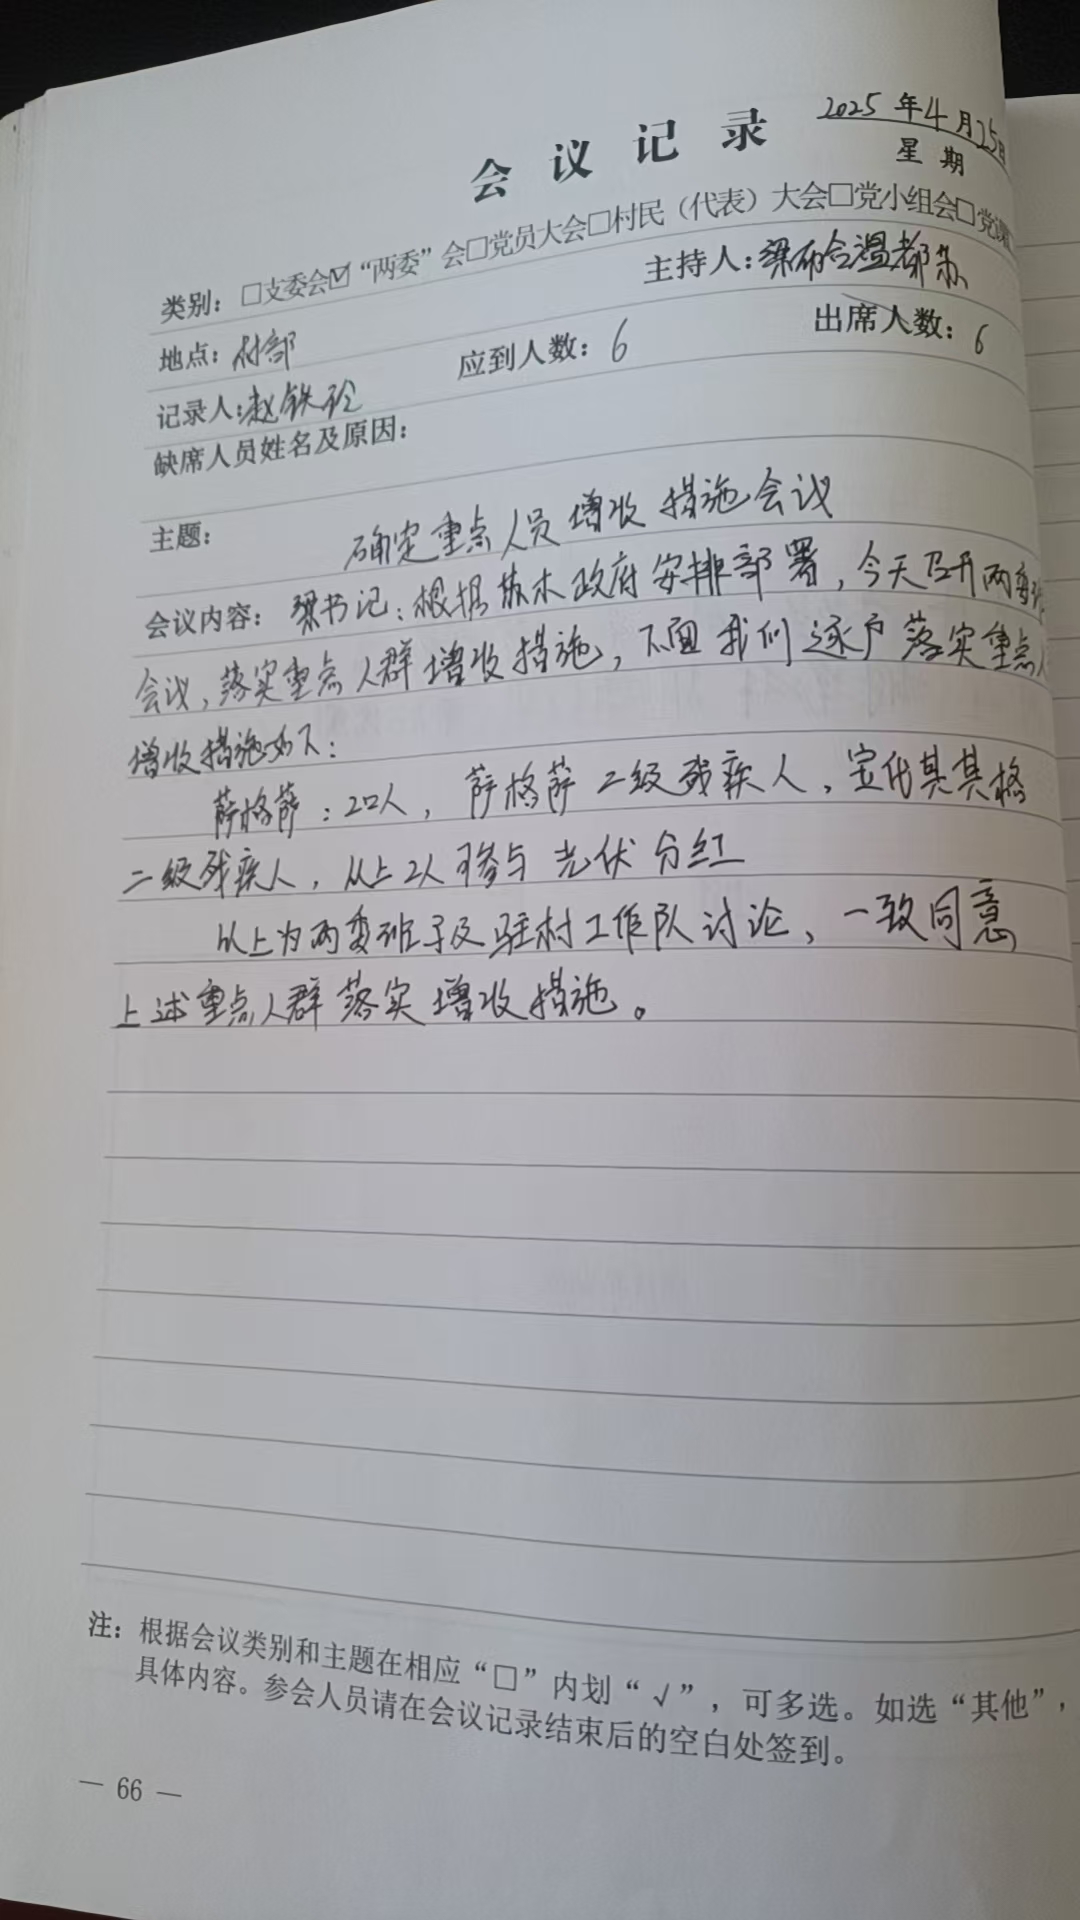 会议记录
2025年4月25日
星期
类别：□支委会☑“两委”会□党员大会□村民（代表）大会□党小组会□党课
主持人：梁布合温都苏
地点：村部
应到人数：6
出席人数：6
记录人：赵铁玲
缺席人员姓名及原因：
主题：
确定重点人员增收措施会议
会议内容：梁书记：根据苏木政府安排部署，今天召开两委
会议，落实重点人群增收措施，下面我们逐户落实重点
增收措施如下：
萨格萨：2口人，萨格萨二级残疾人，宝代其其格
二级残疾人，以上2人可参与光伏分红
以上为两委班子及驻村工作队讨论，一致同意
上述重点人群落实增收措施。
注：根据会议类别和主题在相应“□”内划“√”，可多选。如选“其他”，
具体内容。参会人员请在会议记录结束后的空白处签到。
— 66 —